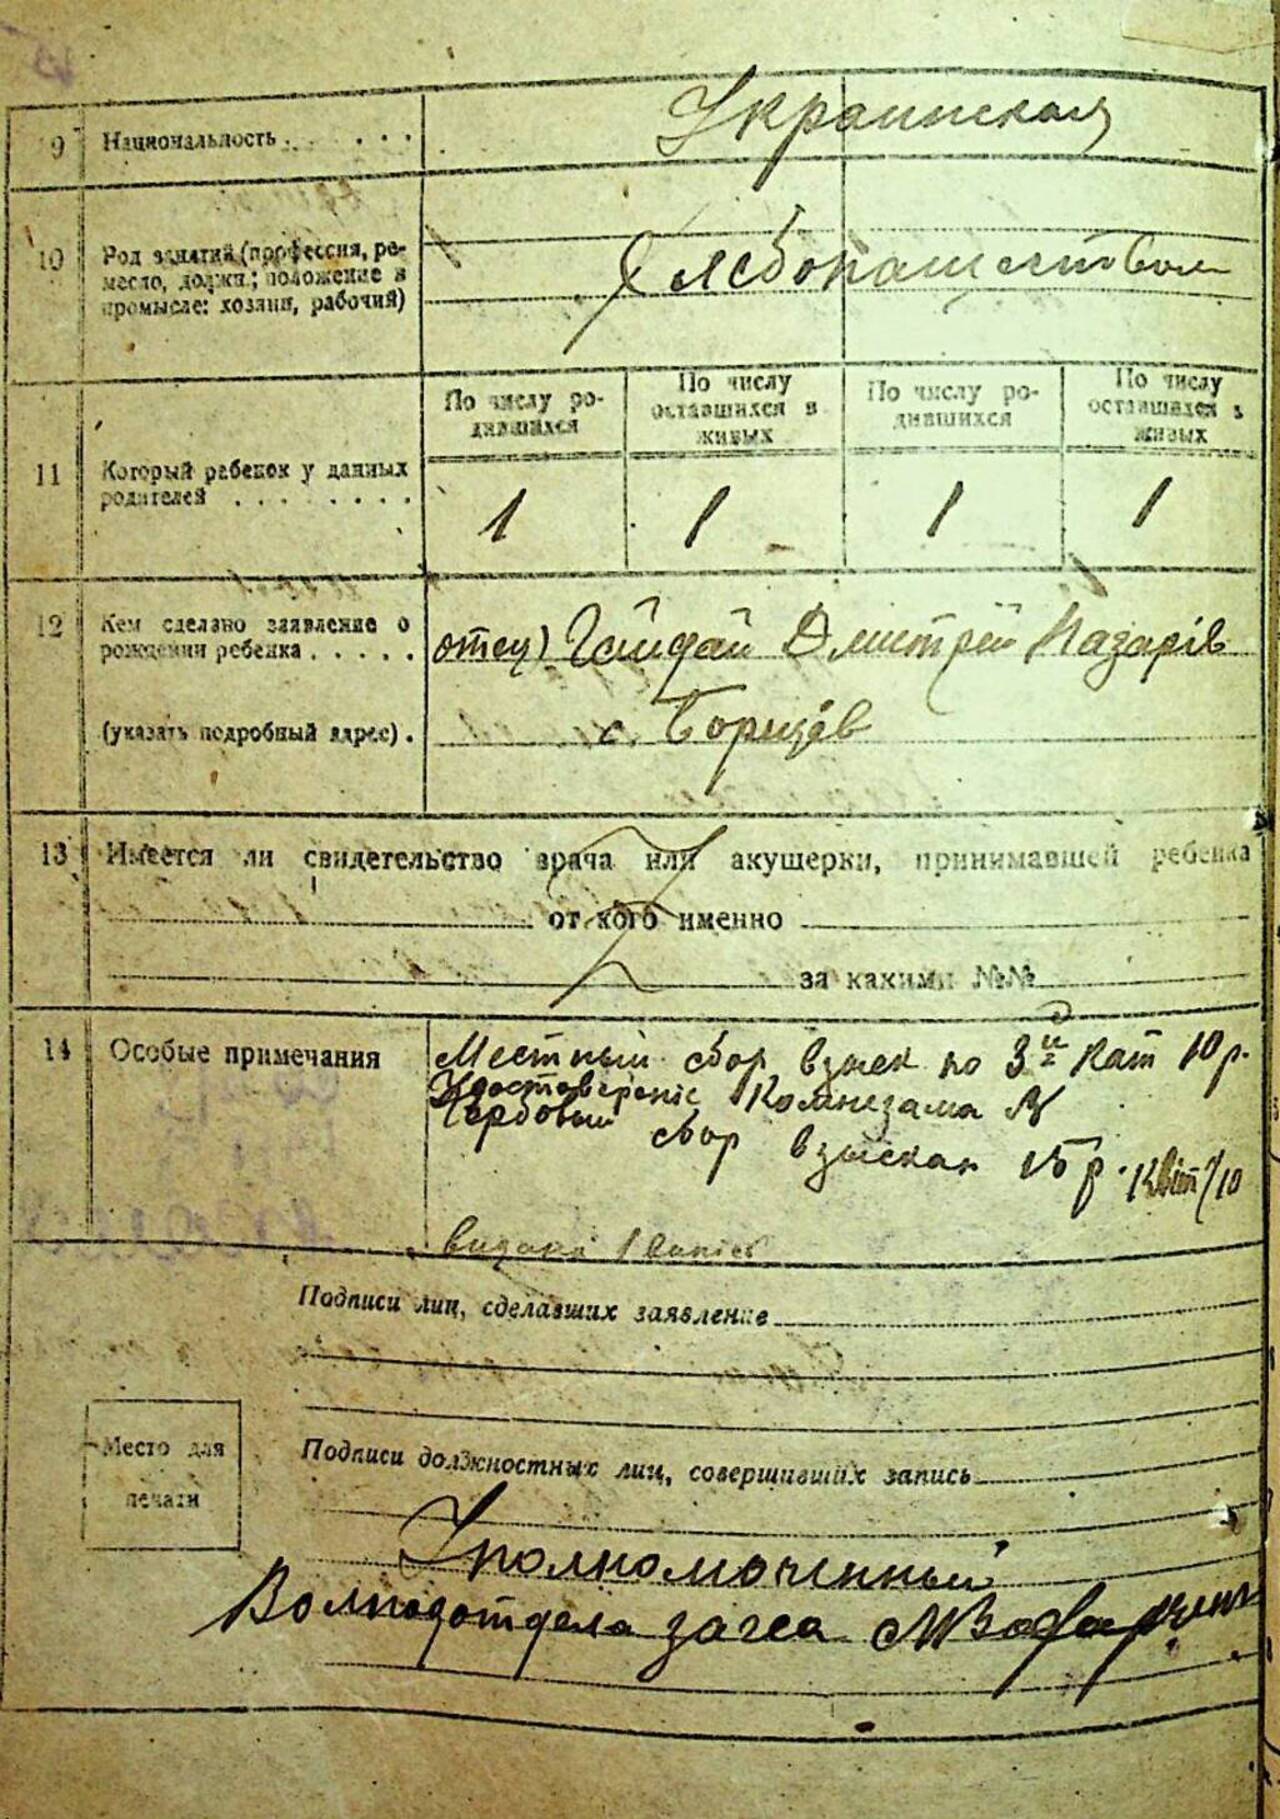 9 Национальность . . . . . . Украинская
10 Род занятий (профессия, ре-
месло, должн.; положение в
промысле: хозяин, рабочий)
Хлебопашеством
По числу ро-
дившихся
По числу
оставшихся в
живых
По числу ро-
дившихся
По числу
оставшихся в
живых
11 Который ребенок у данных
родителей . . . . . . . .
1 1 1 1
12 Кем сделано заявление о
рождении ребенка . . . . .
отец) Гайдай Дмитрій Назарів
(указать подробный адрес) . с. Борщів
13 Имеется ли свидетельство врача или акушерки, принимавшей ребенка
от кого именно
за какими №№
14 Особые примечания
Местный сбор взыск по 3й Кат 10 р.
Удостоверение Комнезама №
Гербовый сбор взыскан 15 р. Квит
Подписи лиц, сделавших заявление
Место для
печати
Подписи должностных лиц, совершивших запись
Уполномоченный
Волподотдела загса